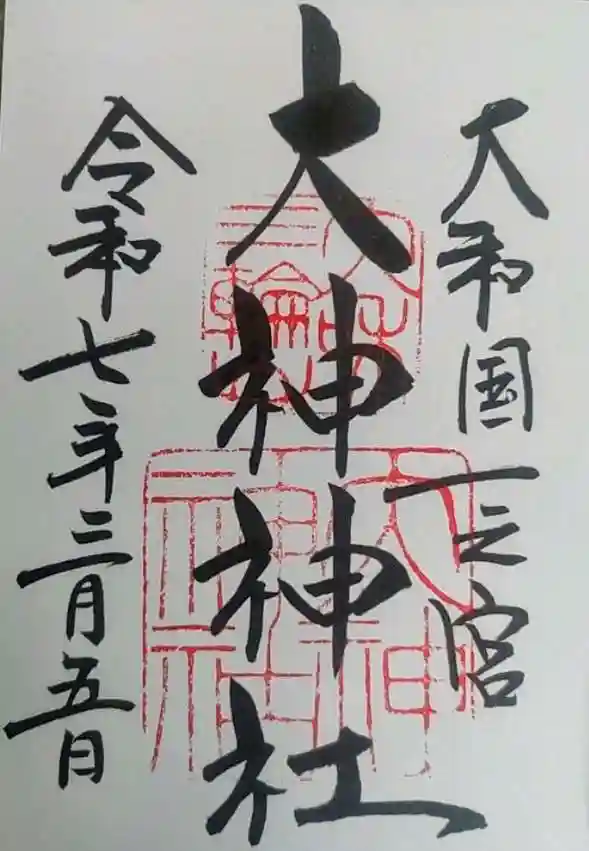 大和国一之宮
大神神社
令和七年三月五日